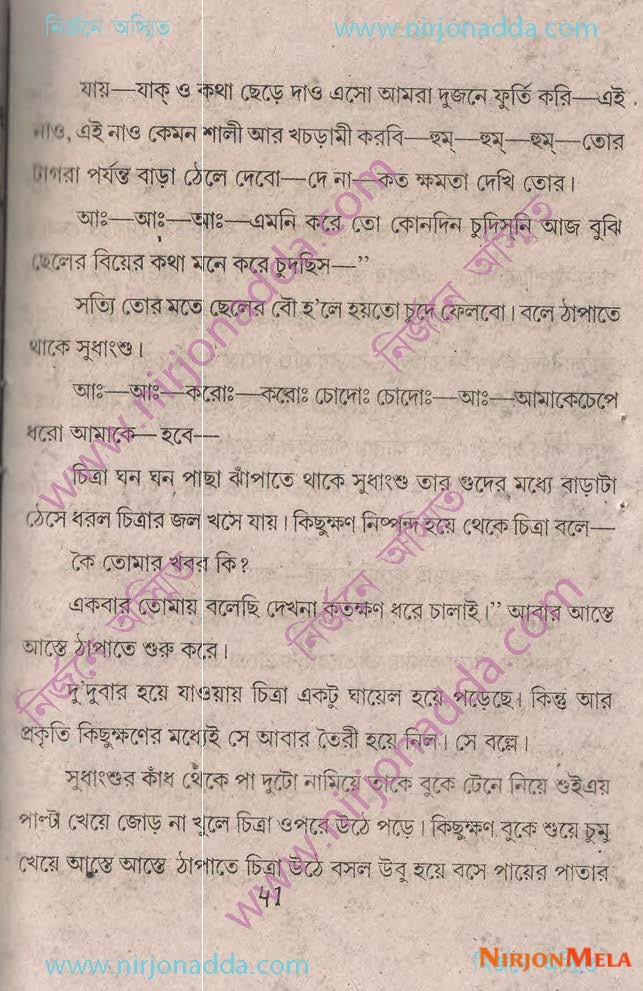 নির্জনে অস্মিত www.nirjonadda.com
যায়—যাক্ ও কথা ছেড়ে দাও এসো আমরা দুজনে ফুর্তি করি—এই
নাও, এই নাও কেমন শালী আর খচড়ামী করবি—হুম্—হুম্—হুম্—তোর
পর্যন্ত বাড়া ঠেলে দেবো—দে না—কত ক্ষমতা দেখি তোর।
আঃ—আঃ—আঃ—এমনি করে তো কোনদিন চুদিসনি আজ বুঝি
ছেলের বিয়ের কথা মনে করে চুদছিস—”
সত্যি তোর মতে ছেলের বৌ হ'লে হয়তো চুদে ফেলবো। বলে ঠাপাতে
থাকে সুধাংশু।
আঃ—আঃ—করোঃ—করোঃ চোদোঃ চোদোঃ—আঃ—আমাকেচেপে
ধরো আমাকে—হবে—
চিত্রা ঘন ঘন পাছা ঝাঁপাতে থাকে সুধাংশু তার গুদের মধ্যে বাড়াটা
ঠেসে ধরল চিত্রার জল খসে যায়। কিছুক্ষণ নিষ্পন্দ হয়ে থেকে চিত্রা বলে—
কৈ তোমার খবর কি?
একবার তোমায় বলেছি দেখনা কতক্ষণ ধরে চালাই।” আবার আস্তে
আস্তে ঠাপাতে শুরু করে।
দু'দুবার হয়ে যাওয়ায় চিত্রা একটু ঘায়েল হয়ে পড়েছে। কিন্তু আর
প্রকৃতি কিছুক্ষণের মধ্যেই সে আবার তৈরী হয়ে নিল। সে বল্লে।
সুধাংশুর কাঁধ থেকে পা দুটো নামিয়ে তাকে বুকে টেনে নিয়ে শুইএয়
পাল্টা খেয়ে জোড় না খুলে চিত্রা ওপরে উঠে পড়ে। কিছুক্ষণ বুকে শুয়ে চুমু
খেয়ে আস্তে আস্তে ঠাপাতে চিত্রা উঠে বসল উবু হয়ে বসে পায়ের পাতার
41
www.nirjonadda.com
নির্জনে অস্মিত
নির্জনে অস্মিত
নির্জনে অস্মিত
www.nirjonadda.com
www.nirjonadda.com
NIRJONMELA